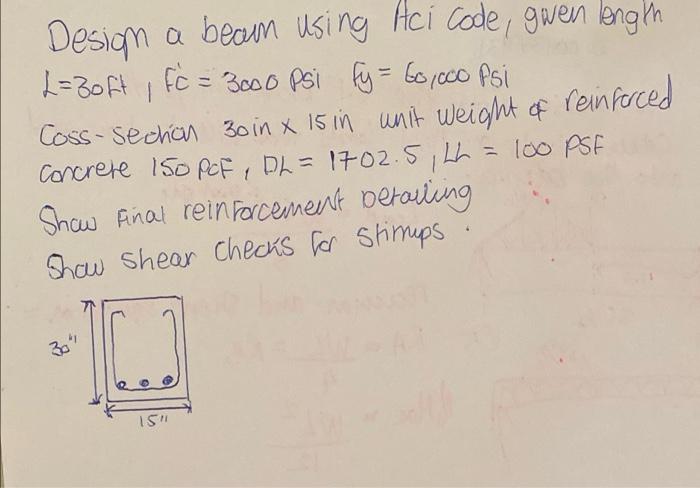 Design a beam using Aci Code, given length
L=30ft, fc' = 3000 psi fy = 60,000 psi
Coss-section 30in x 15in unit weight of reinforced
concrete 150 PCF, DL = 1702.5, LL = 100 PSF
Show final reinforcement Detailing
Show shear checks for stirrups.
30"
15"